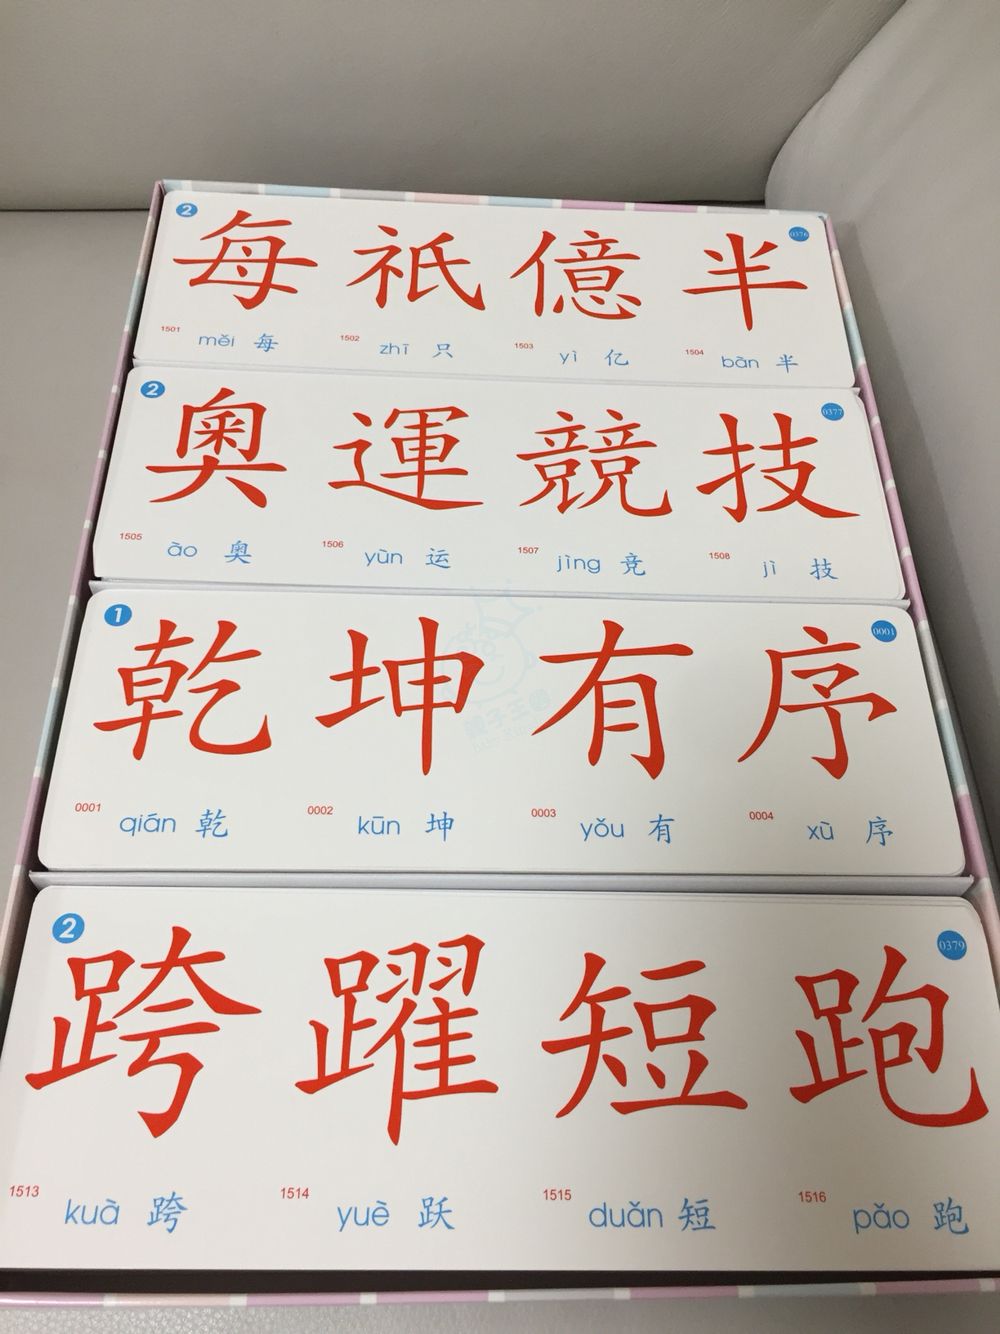 2 每 祇 億 半 0376
1501 měi 每 1502 zhī 只 1503 yì 亿 1504 bàn 半
2 奧 運 競 技 0377
1505 ào 奥 1506 yùn 运 1507 jìng 竞 1508 jì 技
1 乾 坤 有 序 0001
0001 qián 乾 0002 kūn 坤 0003 yǒu 有 0004 xù 序
親子王國
2 跨 躍 短 跑 0379
1513 kuà 跨 1514 yuè 跃 1515 duǎn 短 1516 pǎo 跑